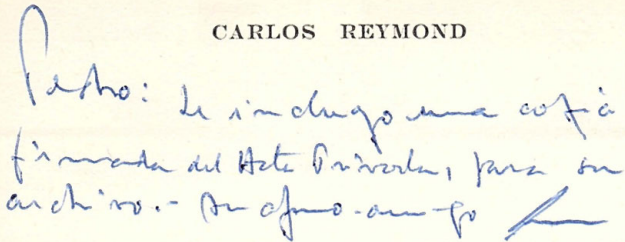 CARLOS REYMOND
Pedro: Le incluyo una copia
firmada del Acta Privada, para su
archivo.- Su afmo. amigo